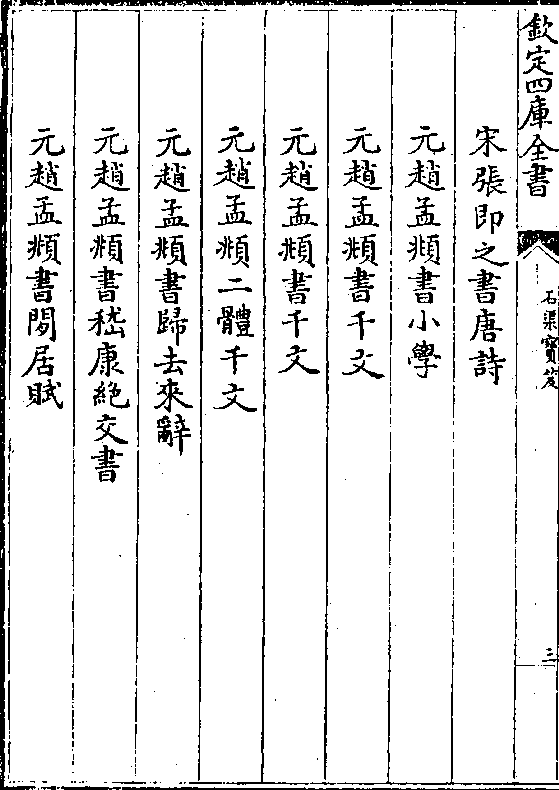 欽定四庫全書
石渠寶笈
三
宋張即之書唐詩
元趙孟頫書小學
元趙孟頫書千文
元趙孟頫書千文
元趙孟頫二體千文
元趙孟頫書歸去來辭
元趙孟頫書嵇康絶交書
元趙孟頫書閒居賦